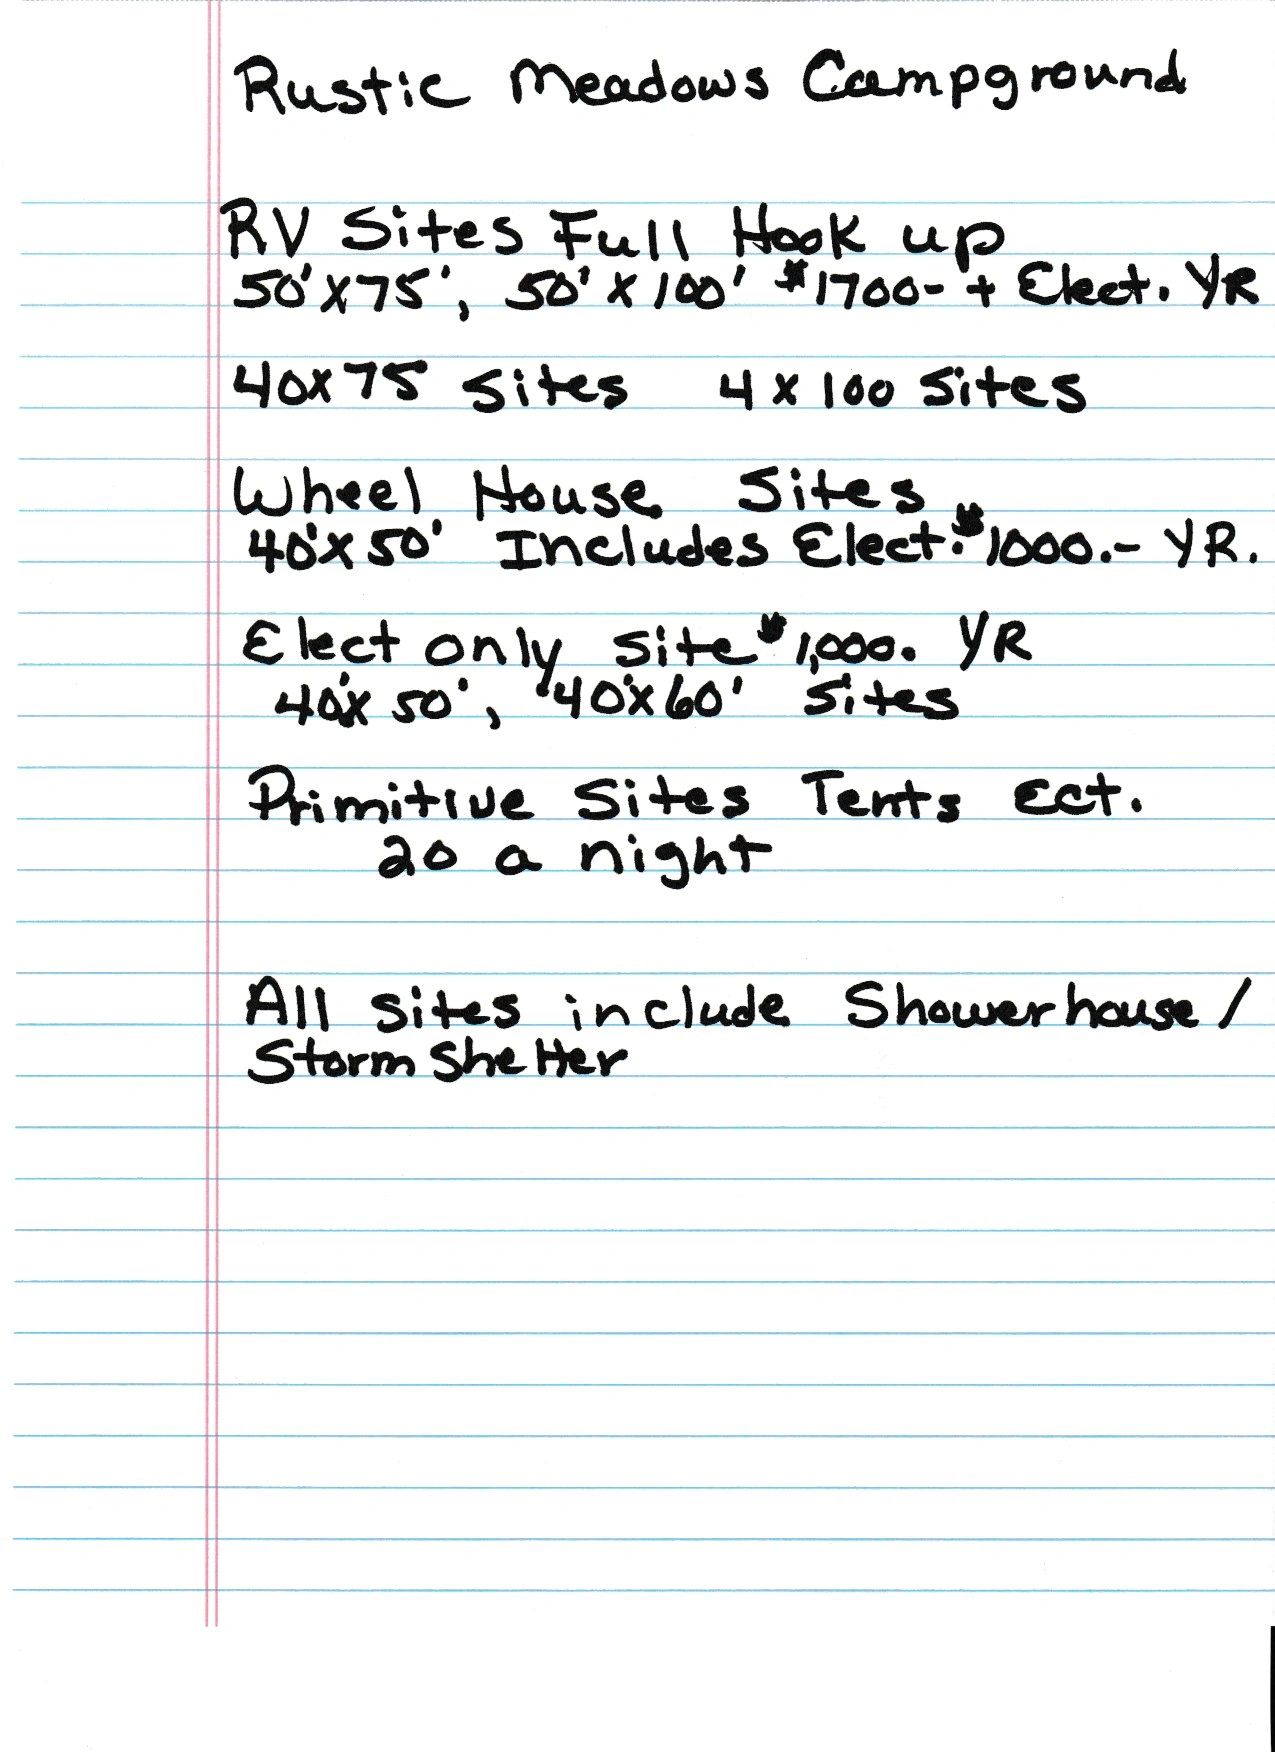 Rustic Meadows Campground
RV Sites Full Hook up
50'x75', 50'x100' $1700- + Elect. YR
40x75 Sites 4x100 Sites
Wheel House Sites
40'x50' Includes Elect. $1000.- YR.
Elect only site $1,000. YR
40'x50', 40'x60' Sites
Primitive Sites Tents Ect.
20 a night
All sites include Showerhouse/
Storm Shelter